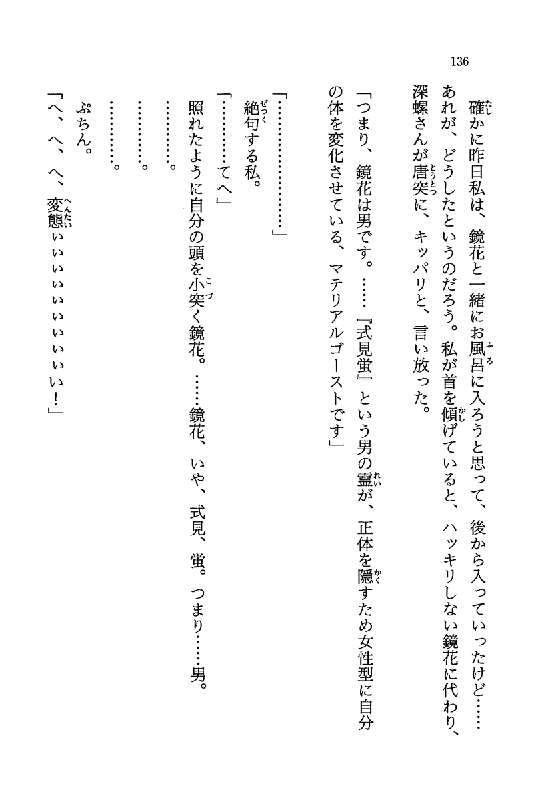 136
確かに昨日私は、鏡花と一緒にお風呂に入ろうと思って、後から入っていったけど……
あれが、どうしたというのだろう。私が首を傾げていると、ハッキリしない鏡花に代わり、
深螺さんが唐突に、キッパリと、言い放った。
「つまり、鏡花は男です。……『式見蛍』という男の霊が、正体を隠すため女性型に自分
の体を変化させている、マテリアルゴーストです」
「…………………」
絶句する私。
「…………てへ」
照れたように自分の頭を小突く鏡花。……鏡花、いや、式見、蛍。つまり……男。
…………。
…………。
…………。
ぷちん。
「へ、へ、へ、変態ぃぃぃぃぃぃぃぃぃい！」